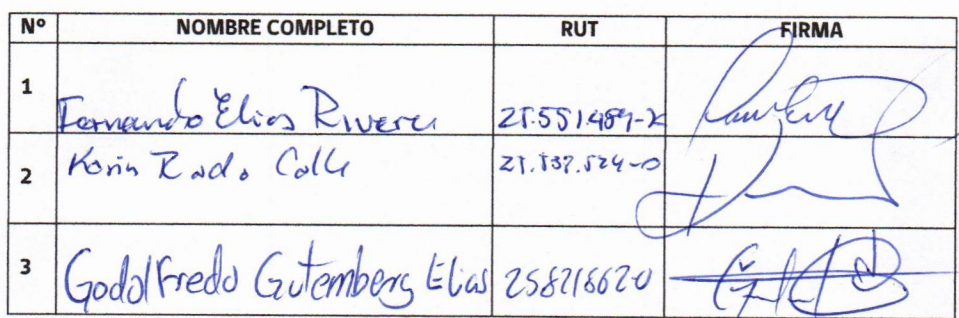 Nº NOMBRE COMPLETO RUT FIRMA
1 Fernando Elias Rivera 25.551.489-K
2 Korin Rado Calle
3 Godolfredo Gutemberg Elias 25821662-0